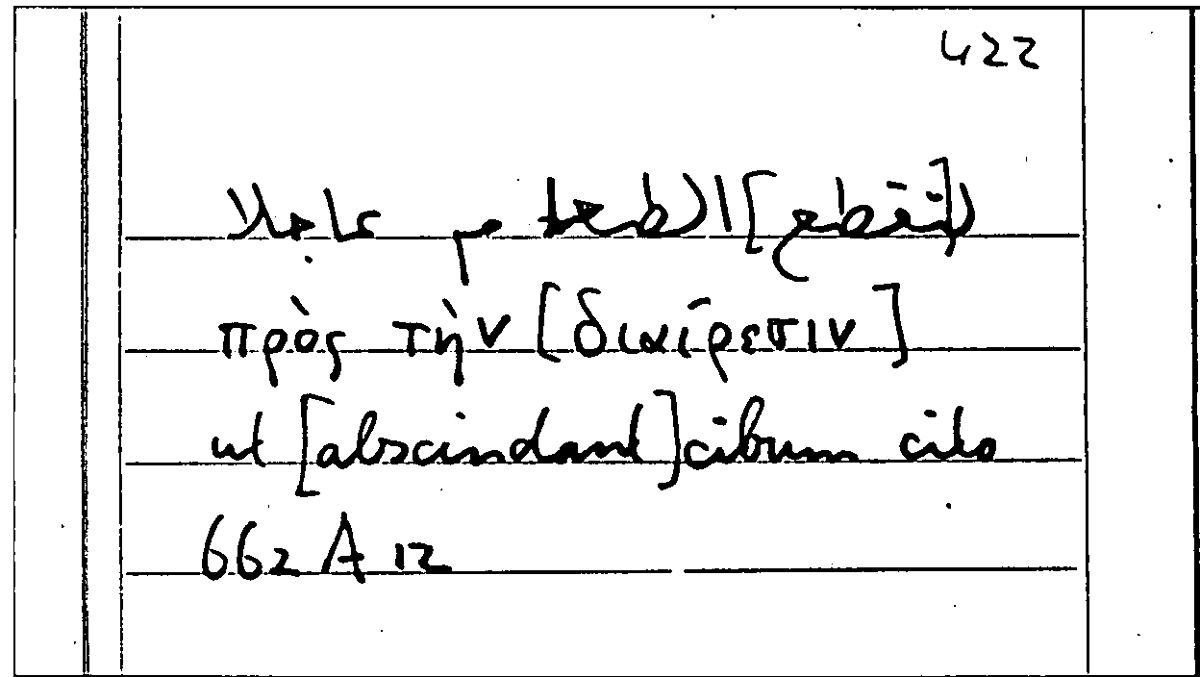 422
ل[تقطع] الطعم عاجلا
πρὸς τὴν [διαίρεσιν]
ut [abscindant] cibum cito
662 A 12